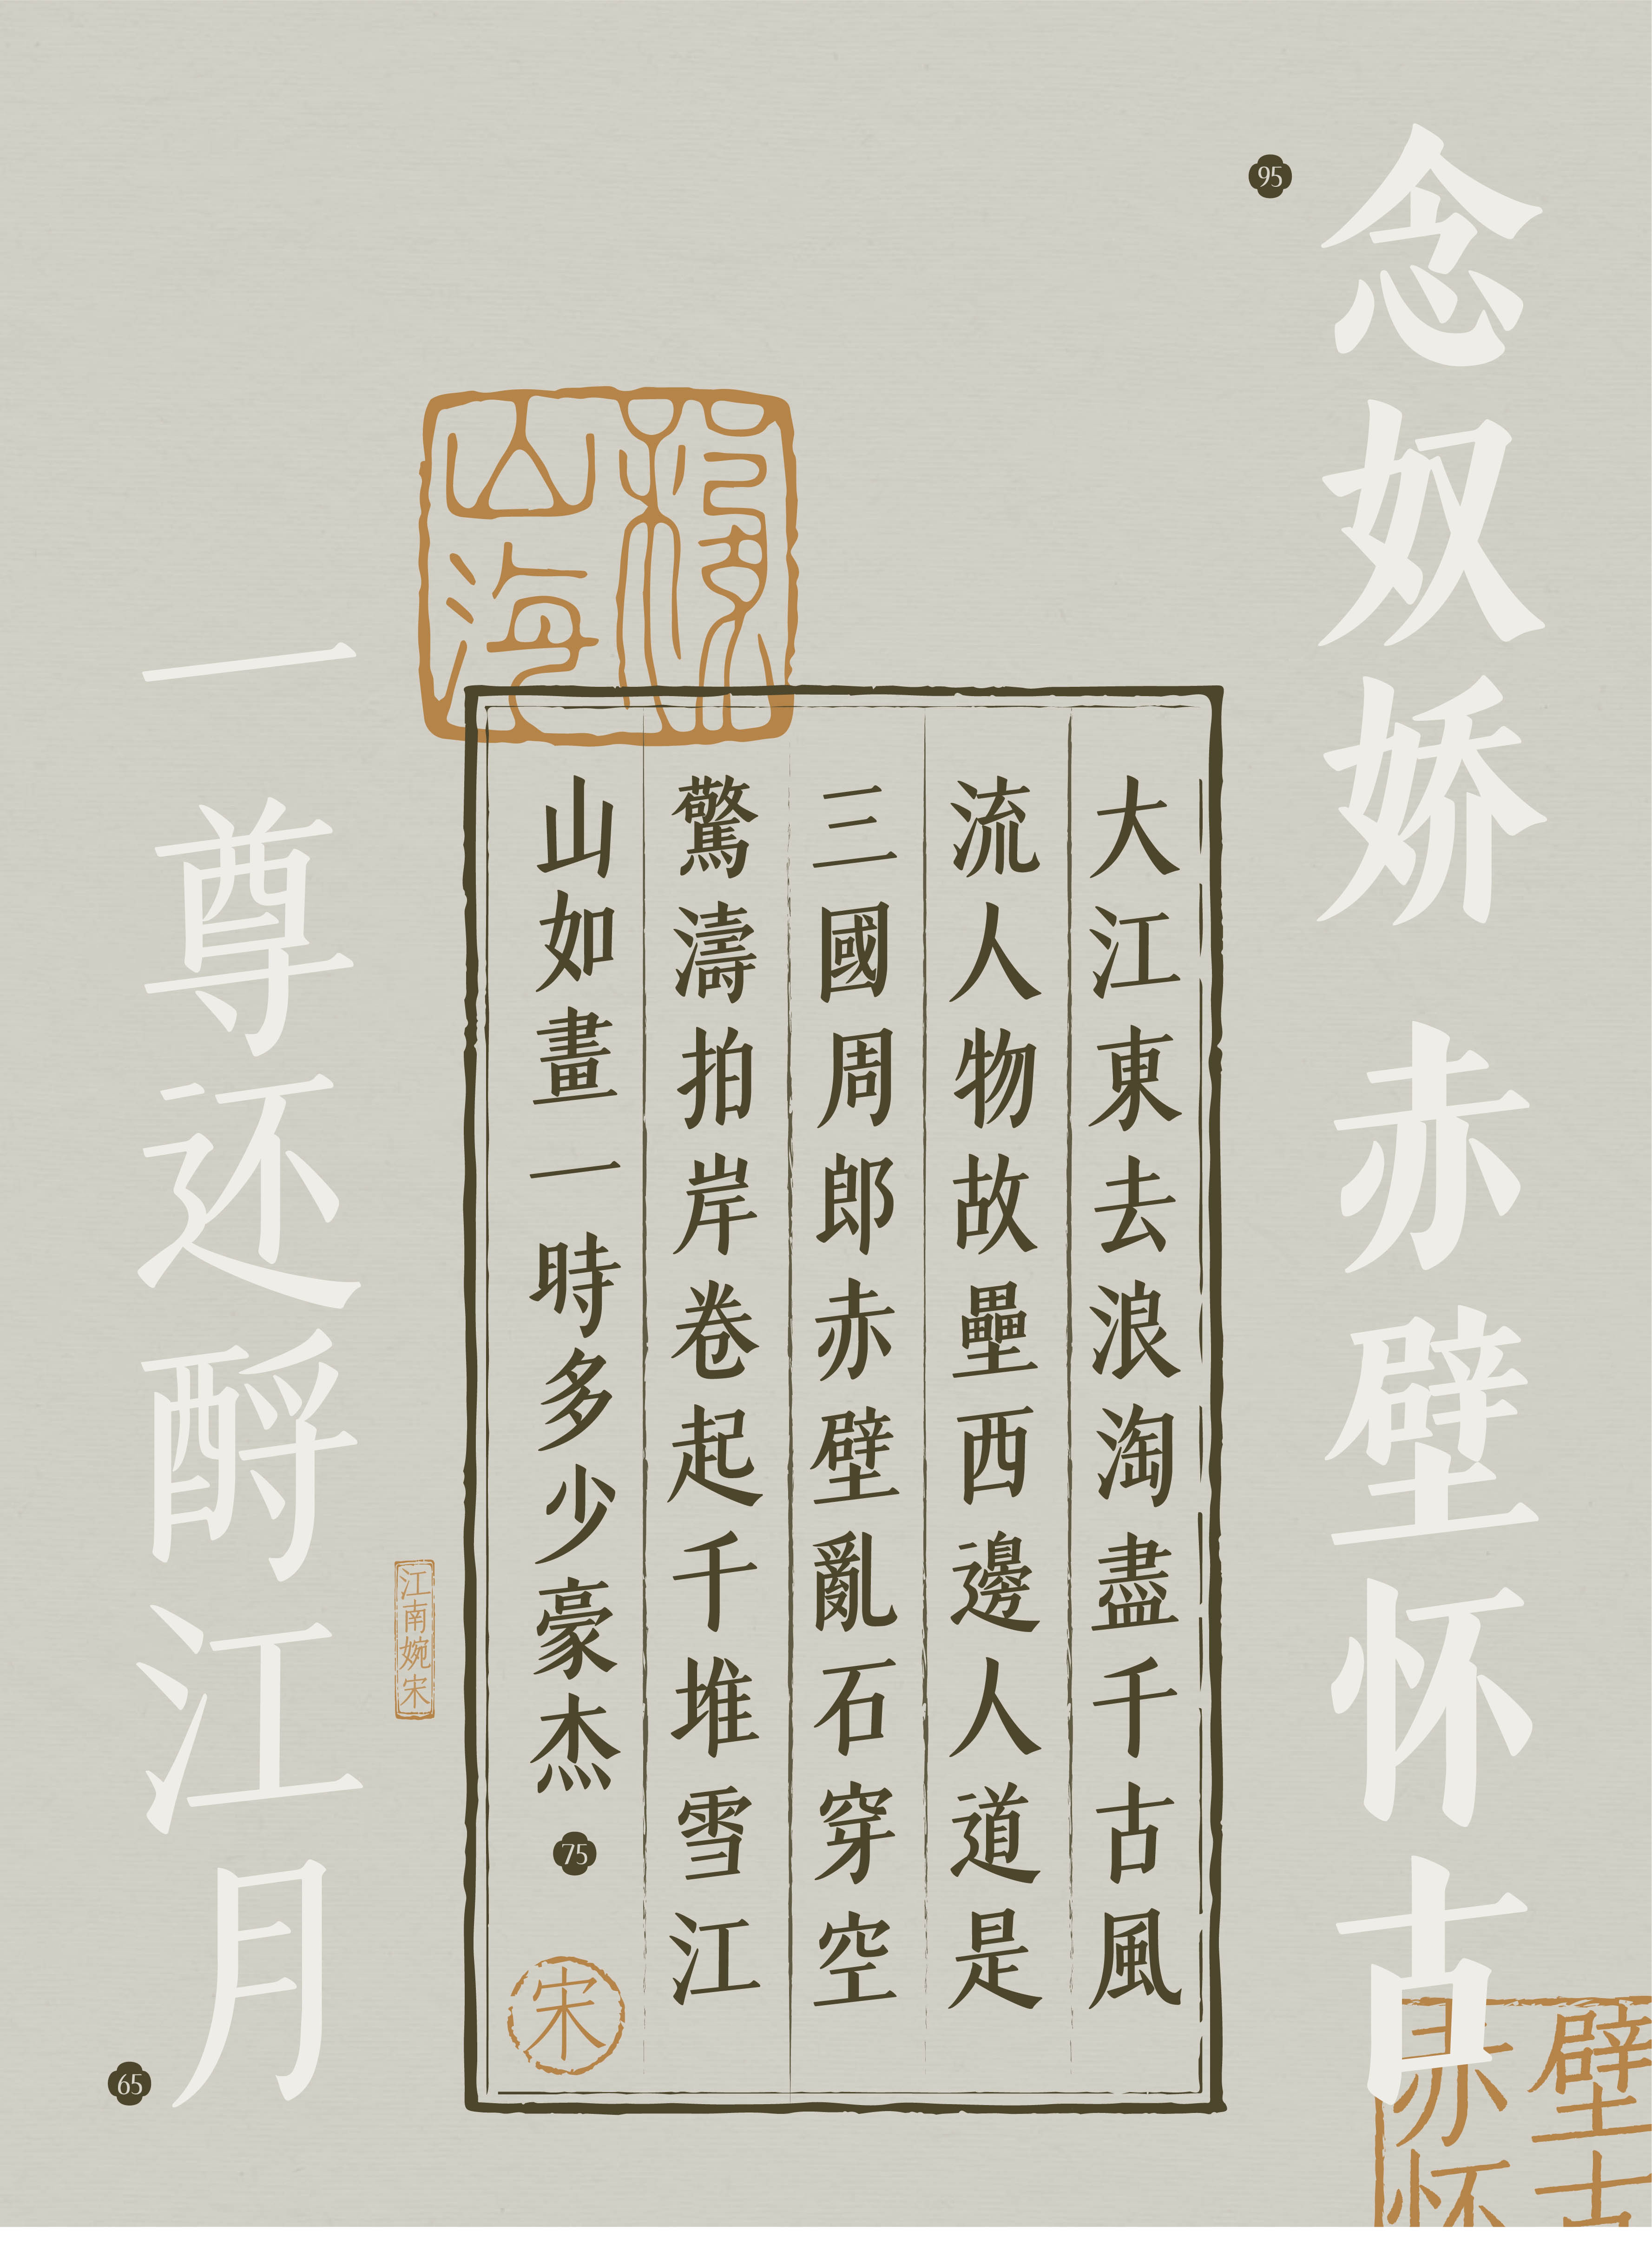 念奴娇 赤壁怀古
95
大江東去浪淘盡千古風
流人物故壘西邊人道是
三國周郎赤壁亂石穿空
驚濤拍岸卷起千堆雪江
山如畫一時多少豪杰
75
宋
山海
江南婉宋
一尊还酹江月
65
赤壁
怀古